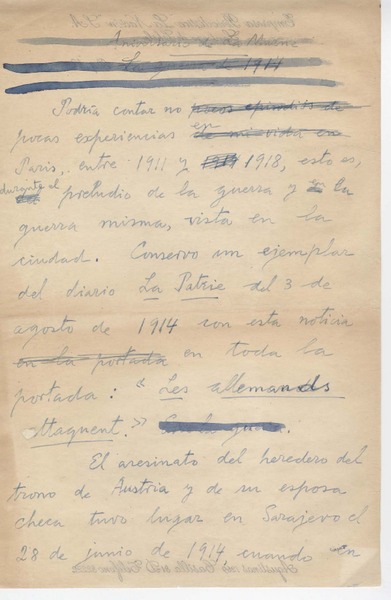 1914
Podría contar no pocos episodios de
pocas experiencias en de mi vida en
París, entre 1911 y 1918, esto es,
durante el preludio de la guerra y la
guerra misma, vista en la
ciudad. Conservo un ejemplar
del diario La Patrie del 3 de
agosto de 1914 con esta noticia
en la portada en toda la
portada: "Les allemands
attaquent."
El asesinato del heredero del
trono de Austria y de su esposa
checa tuvo lugar en Sarajevo el
28 de junio de 1914 cuando en